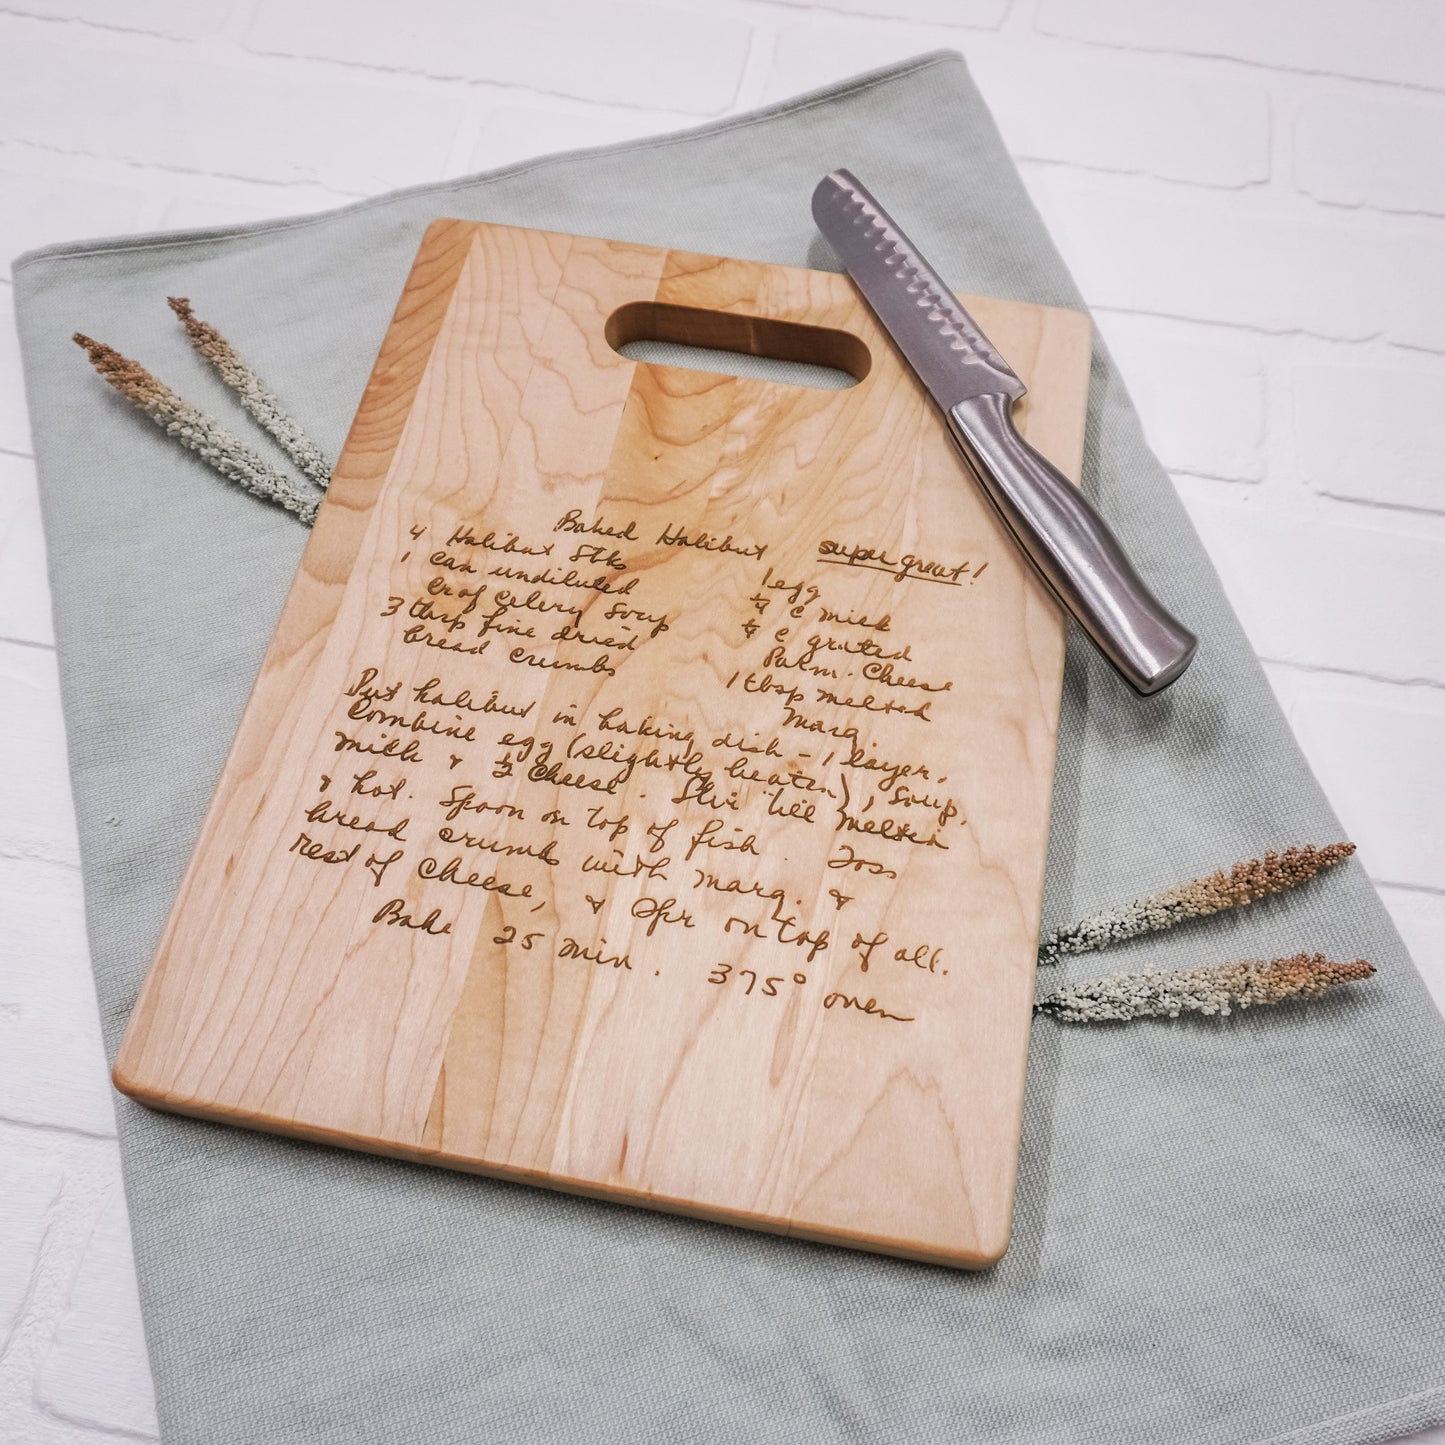 Baked Halibut super great!
4 Halibut Stks
1 can undiluted
Cr of Celery Soup
3 tbsp fine dried
bread crumbs
1 egg
1/4 c milk
1/4 c grated
Parm. Cheese
1 tbsp melted
marg.
Put halibut in baking dish - 1 layer.
Combine egg (slightly beaten), soup,
milk & 1/2 cheese. Stir 'till melted
& hot. Spoon on top of fish. Toss
bread crumbs with marg. &
rest of cheese, & Spr on top of all.
Bake 25 min. 375° oven